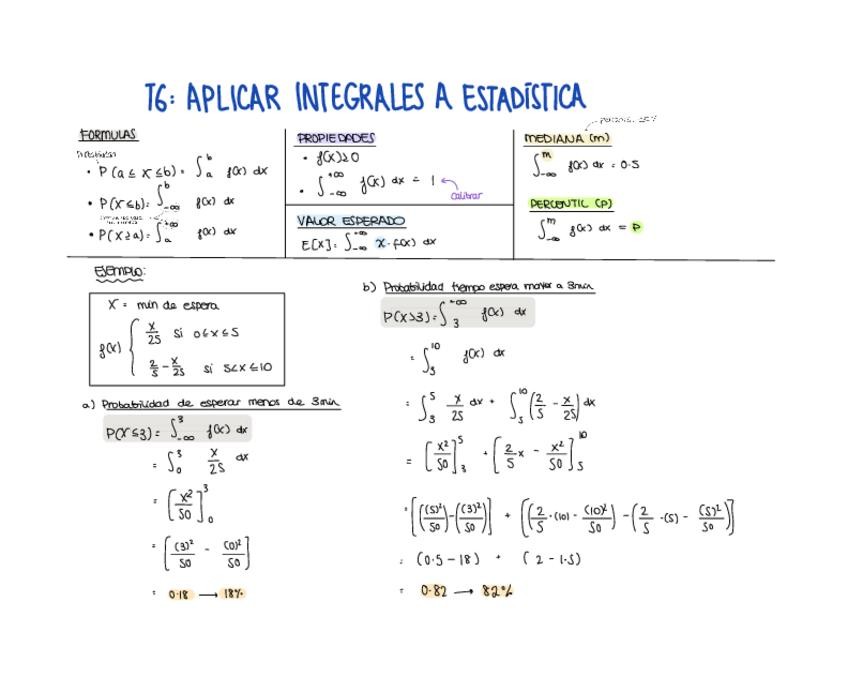 T6: APLICAR INTEGRALES A ESTADÍSTICA
FORMULAS
• P(a ≤ x ≤ b) = ∫_a^b f(x) dx
• P(x ≤ b) = ∫_{-∞}^b f(x) dx
• P(x ≥ a) = ∫_a^{+∞} f(x) dx
PROPIEDADES
• f(x) ≥ 0
• ∫_{-∞}^{+∞} f(x) dx = 1
calibrar
VALOR ESPERADO
E[X] = ∫_{-∞}^{+∞} x · f(x) dx
MEDIANA (m)
∫_{-∞}^m f(x) dx = 0.5
PERCENTIL (P)
∫_{-∞}^m f(x) dx = P
EJEMPLO:
X = min de espera
f(x) {
x/25 si 0<x≤5
2/5 - x/25 si 5<x≤10
a) Probabilidad de esperar menos de 3min
P(X≤3) = ∫_{-∞}^3 f(x) dx
= ∫_0^3 x/25 dx
= [x²/50]_0^3
= [(3)²/50 - (0)²/50]
= 0.18 → 18%
b) Probabilidad tiempo espera mayor a 3min
P(X>3) = ∫_3^{+∞} f(x) dx
= ∫_3^{10} f(x) dx
= ∫_3^5 x/25 dx + ∫_5^{10} (2/5 - x/25) dx
= [x²/50]_3^5 + [2/5 x - x²/50]_5^{10}
= [((5)²/50) - ((3)²/50)] + [(2/5 · (10) - (10)²/50) - (2/5 · (5) - (5)²/50)]
= (0.5 - 18) + (2 - 1.5)
= 0.82 → 82%